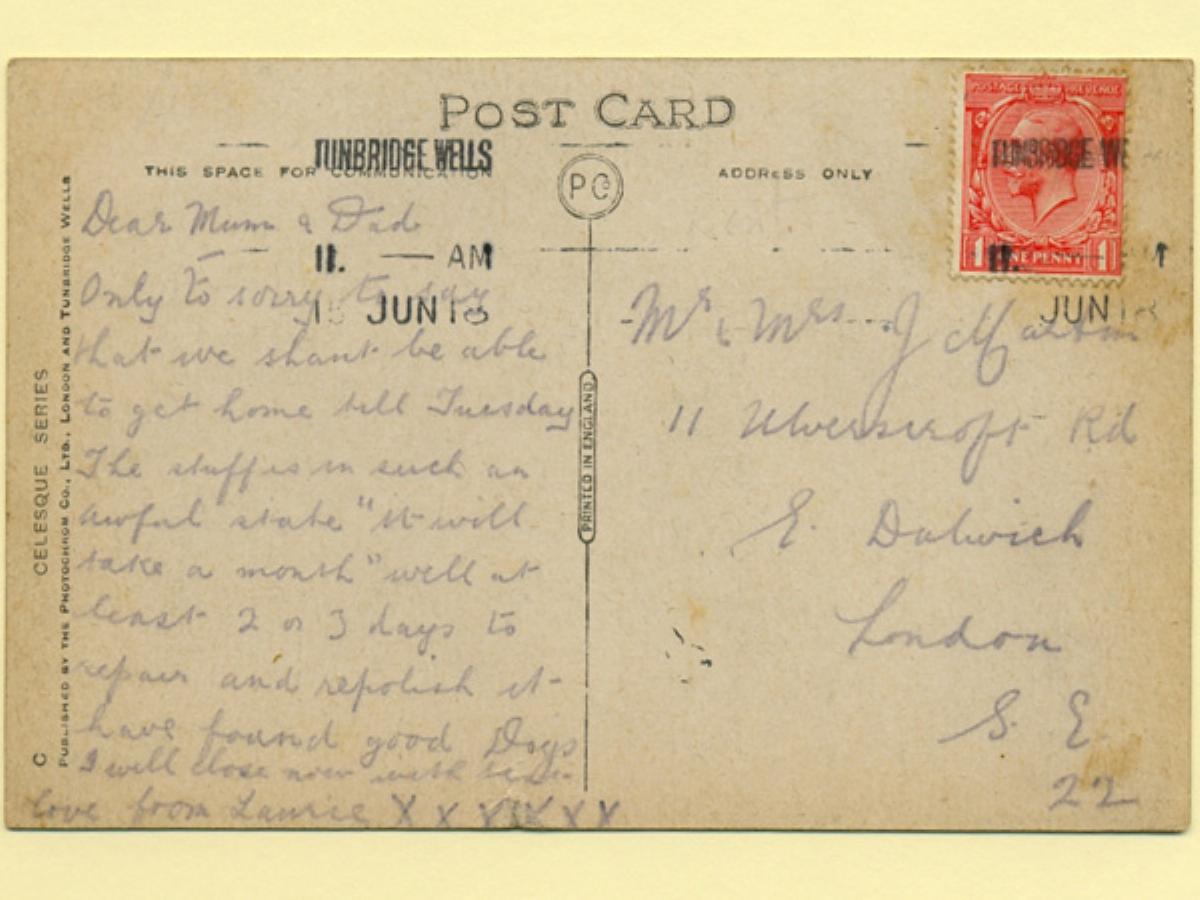 POST CARD
TUNBRIDGE WELLS
THIS SPACE FOR COMMUNICATION
ADDRESS ONLY
PC
POSTAGE REVENUE
TUNBRIDGE WE
1 ONE PENNY 1
11. — AM
JUN 18
11.
JUN 18
Dear Mum & Dad
Only to sorry to say
that we shant be able
to get home till Tuesday
The stuff is in such an
awful state "it will
take a month" well at
least 2 or 3 days to
repair and repolish it
have found good Digs
I will close now with best
love from Laurie X X X X X X
Mr & Mrs J Martin
11 Ulverscroft Rd
E. Dulwich
London
S. E.
22
PRINTED IN ENGLAND
C CELESQUE SERIES
PUBLISHED BY THE PHOTOCHROM CO., LTD., LONDON AND TUNBRIDGE WELLS